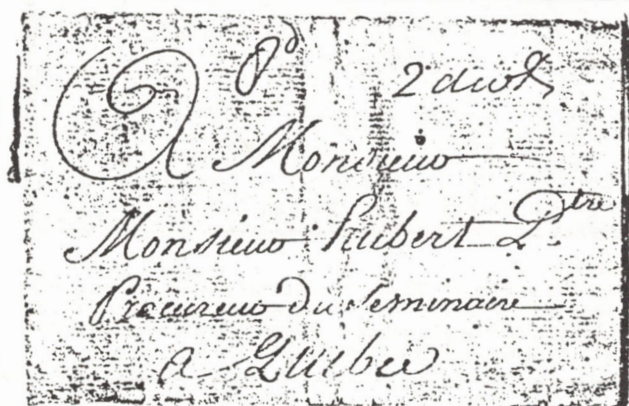 8d 2 dwt
A Monsieur
Monsieur hubert Ptre
Procureur du Seminaire
a Quebec